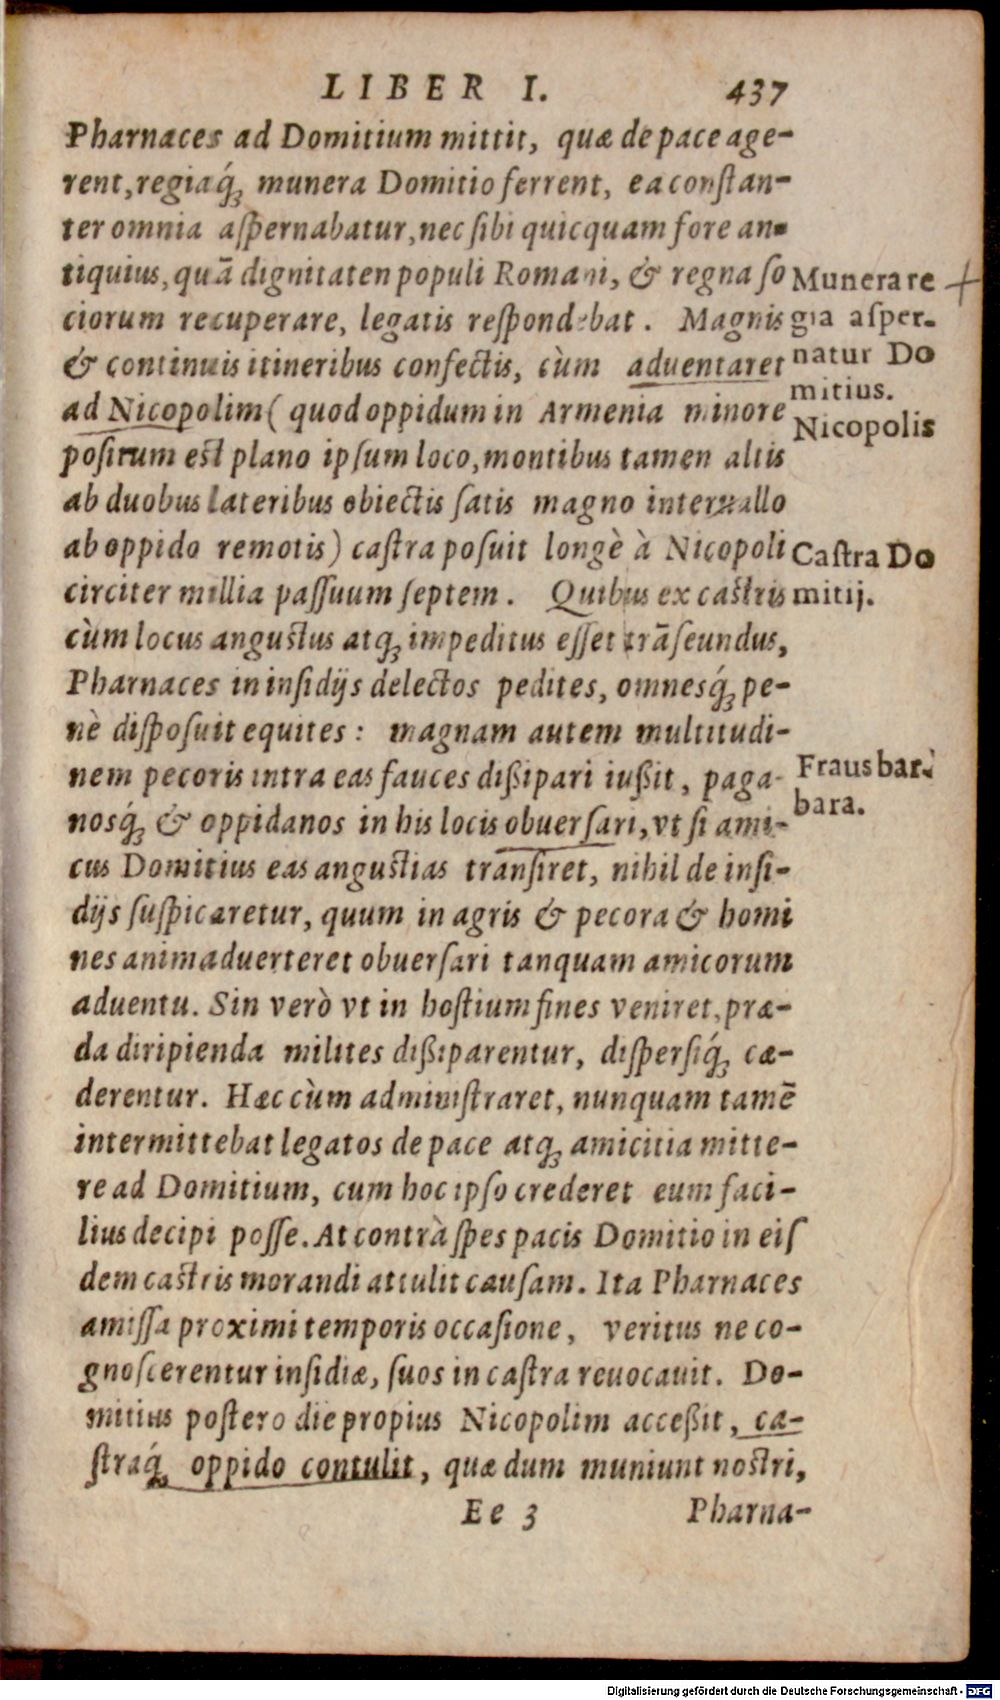 LIBER I. 437
Pharnaces ad Domitium mittit, quæ de pace age-
rent, regiaq́; munera Domitio ferrent, ea conſtan-
ter omnia aſpernabatur, nec ſibi quicquam fore an-
tiquius, quā dignitaten populi Romani, & regna ſo
ciorum recuperare, legatis reſpondebat. Magnis
& continuis itineribus confectis, cùm aduentaret
ad Nicopolim (quod oppidum in Armenia minore
poſitum est plano ipſum loco, montibus tamen altis
ab duobus lateribus obiectis ſatis magno interuallo
ab oppido remotis) caſtra poſuit longè à Nicopoli
circiter millia paſſuum ſeptem. Quibus ex castris
cùm locus angustus atq; impeditus eſſet trāſeundus,
Pharnaces in inſidijs delectos pedites, omnesq́; pe-
nè diſpoſuit equites: magnam autem multitudi-
nem pecoris intra eas fauces dißipari iußit, paga-
nosq́; & oppidanos in his locis obuerſari, vt ſi ami-
cus Domitius eas angustias tranſiret, nihil de inſi-
dijs ſuſpicaretur, quum in agris & pecora & homi
nes animaduerteret obuerſari tanquam amicorum
aduentu. Sin verò vt in hoſtium fines veniret, præ-
da diripienda milites dißiparentur, diſperſiq́; cæ-
derentur. Hæc cùm adminiſtraret, nunquam tamē
intermittebat legatos de pace atq; amicitia mitte-
re ad Domitium, cum hoc ipſo crederet eum faci-
lius decipi poſſe. At contrà ſpes pacis Domitio in eiſ
dem castris morandi attulit cauſam. Ita Pharnaces
amiſſa proximi temporis occaſione, veritus ne co-
gnoſcerentur inſidiæ, ſuos in caſtra reuocauit. Do-
mitius poſtero die propius Nicopolim acceßit, ca-
ſtraq́; oppido contulit, quæ dum muniunt nostri,
Ee 3 Pharna-
Munera re
gia aſper-
natur Do
mitius.
Nicopolis
Caſtra Do
mitij.
Fraus bar-
bara.
Digitalisierung gefördert durch die Deutsche Forschungsgemeinschaft - DFG